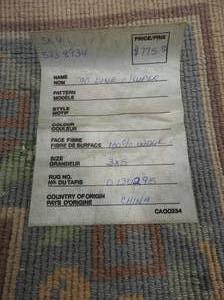 PRICE/PRIX
$775
NAME
NOM
90 LINE
PATTERN
MODÈLE
STYLE
MOTIF
COLOUR
COULEUR
FACE FIBRE
FIBRE DE SURFACE 100% WOOL
SIZE
GRANDEUR 3x5
RUG NO.
No. DU TAPIS
COUNTRY OF ORIGIN
PAYS D'ORIGINE CHINA
CAO0334